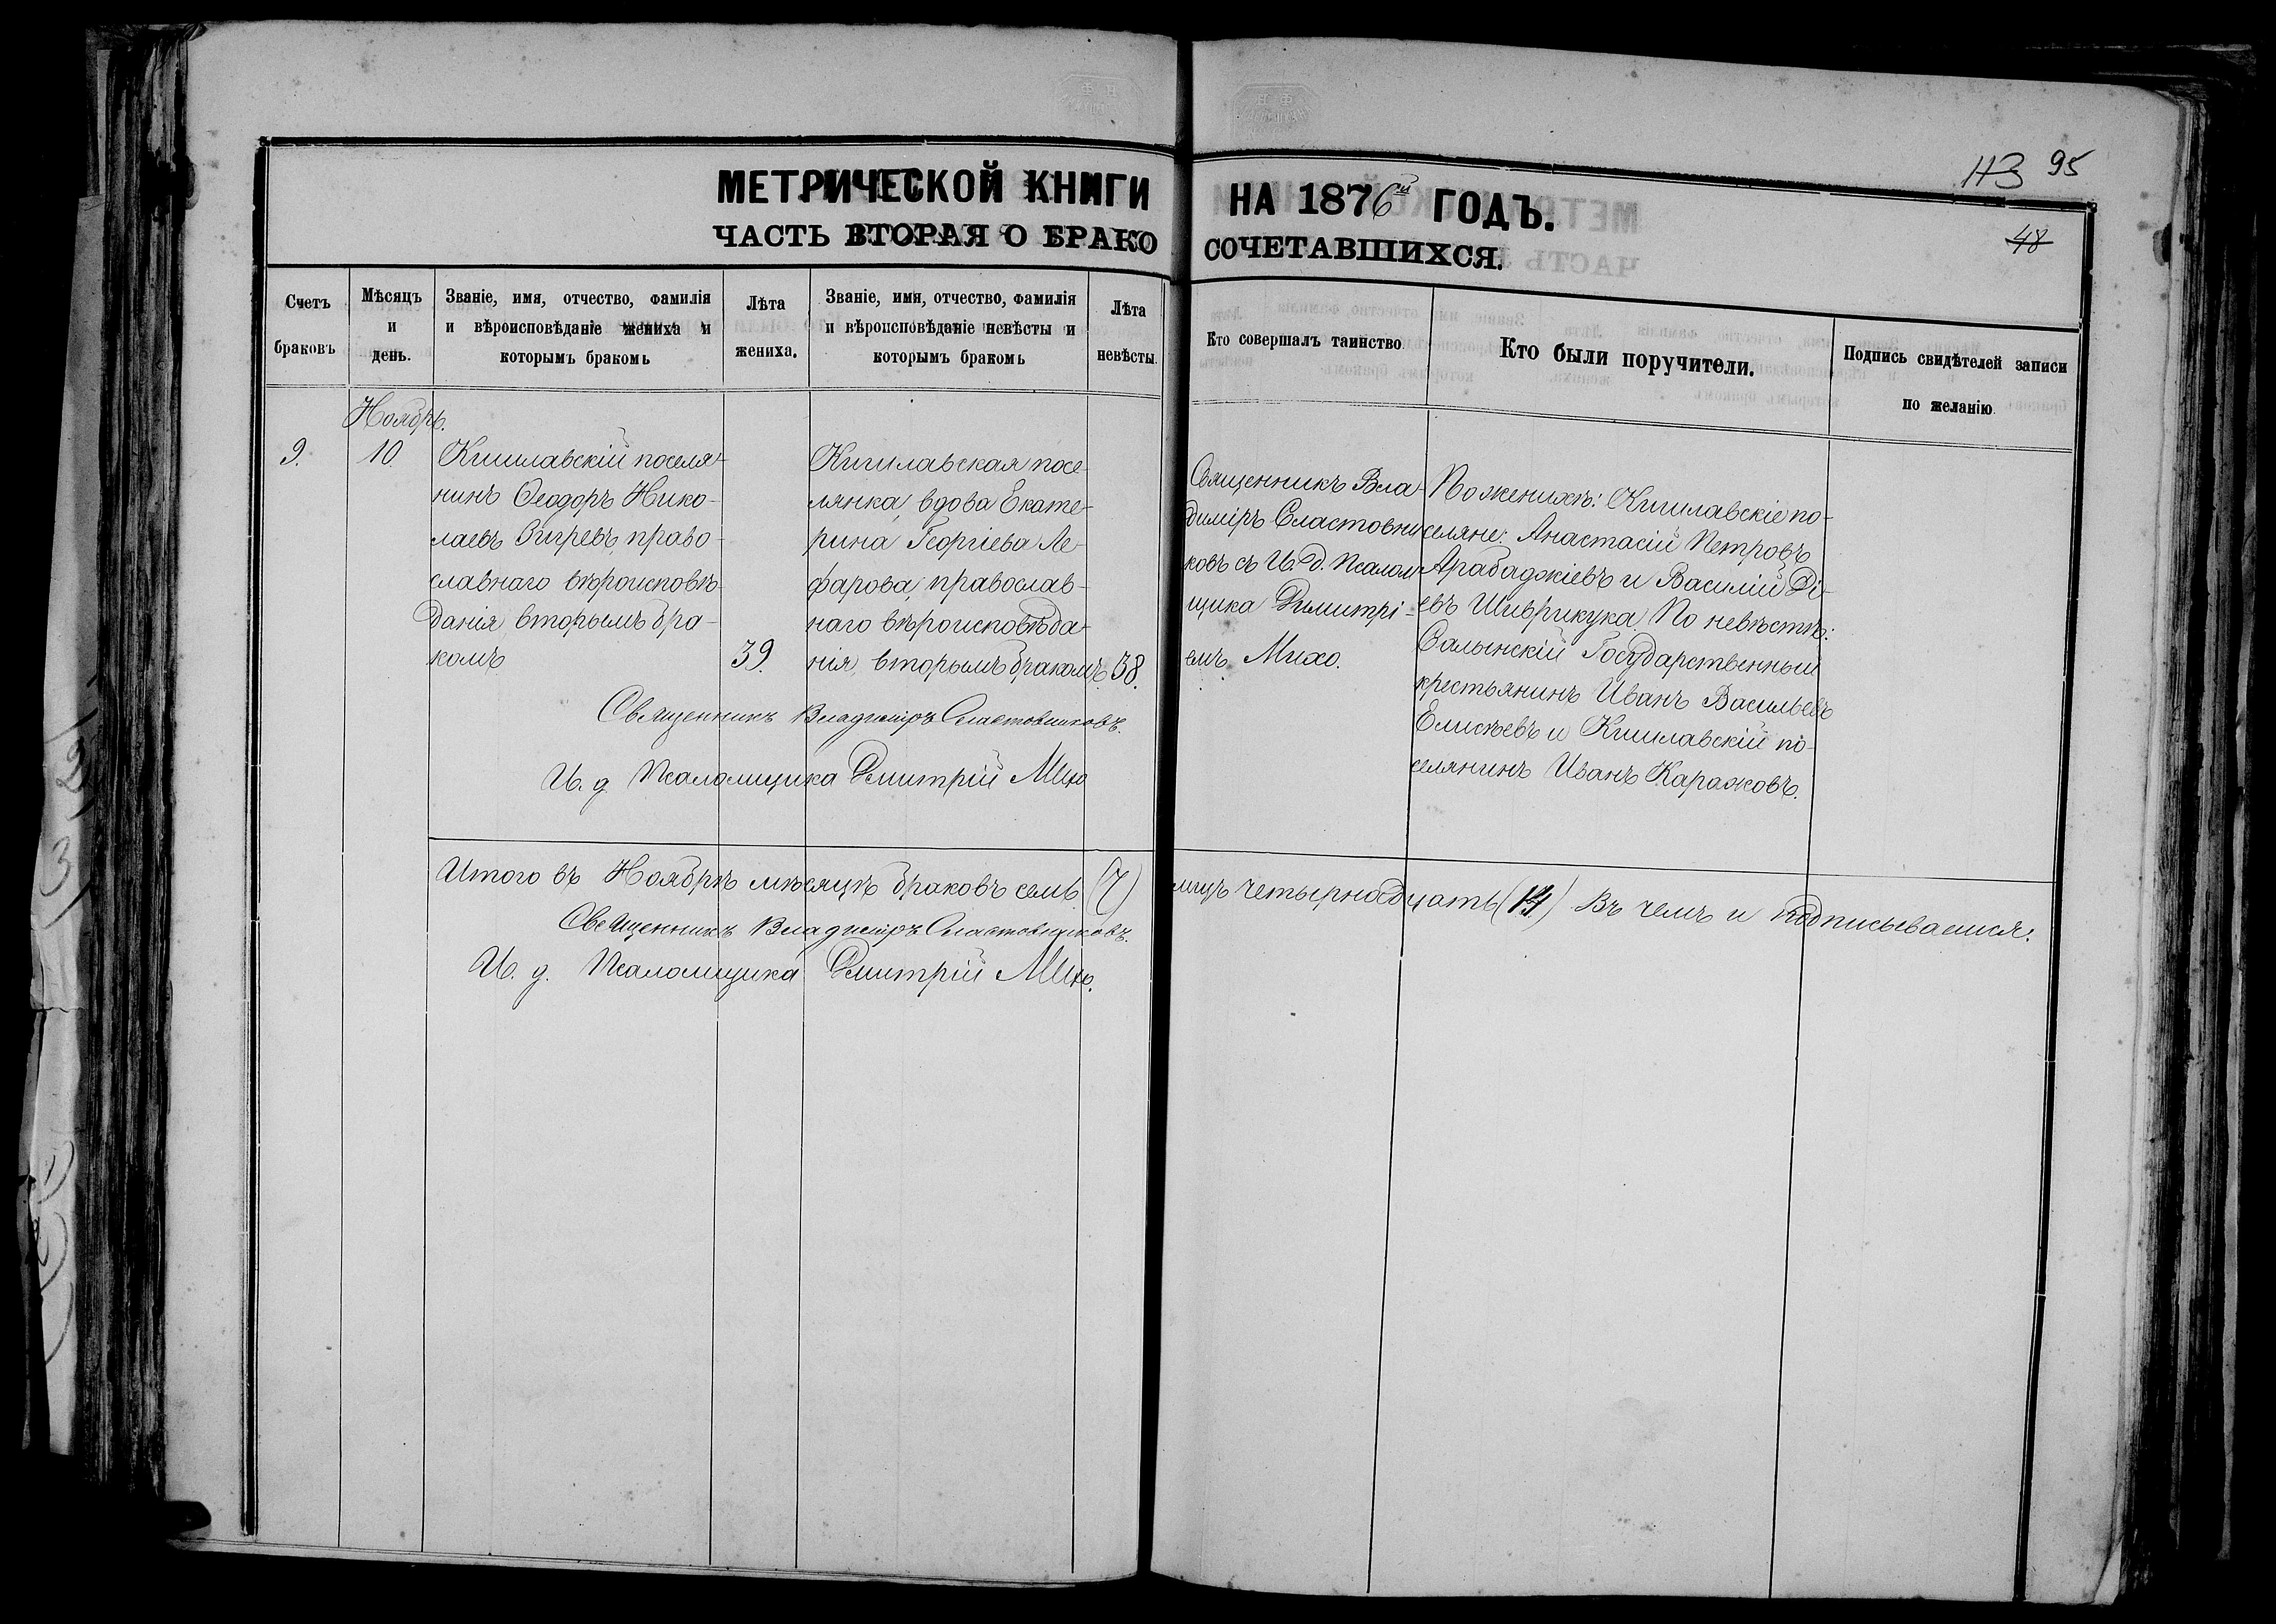 МЕТРИЧЕСКОЙ КНИГИ НА 1876й ГОДЪ.
ЧАСТЬ ВТОРАЯ О БРАКОСОЧЕТАВШИХСЯ.
113 95
48
Счетъ браковъ
Мѣсяцъ и день.
Званіе, имя, отчество, фамилія
и вѣроисповѣданіе жениха и
которымъ бракомъ
Лѣта жениха.
Званіе, имя, отчество, фамилія
и вѣроисповѣданіе невѣсты и
которымъ бракомъ
Лѣта невѣсты.
Кто совершалъ таинство
Кто были поручители.
Подпись свидѣтелей записи
по желанію
Ноябрь.
9.
10.
Кишлавскій поселя-
нинъ Ѳеодоръ Нико-
лаевъ право-
славнаго вѣроисповѣ-
данія, вторымъ бра-
комъ
39.
Кишлавская посе-
лянка, вдова Екате-
рина Георгіева Ле-
фарова, православ-
наго вѣроисповѣда-
нія, вторымъ бракомъ.
38.
Священникъ Вла-
диміръ Сластовни-
ковъ съ И. д. Псалом-
щика Димитрі-
емъ Михо.
По женихѣ: Кишлавскіе по-
селяне: Анастасій Петровъ
Арабаджіевъ и Василій Ді-
евъ Шиврикука По невѣстѣ:
Салынскій Государственный
крестьянинъ Иванъ Васильевъ
Елисѣевъ и Кишлавскій по-
селянинъ Иванъ Каражовъ.
Священникъ Владиміръ Сластовниковъ.
И. д. Псаломщика Димитрій Михо
Итого въ Ноябрѣ мѣсяцѣ браковъ семь (7) лицъ четырнадцать (14) Въ чемъ и подписываемся:
Священникъ Владиміръ Сластовниковъ.
И. д. Псаломщика Димитрій Михо.